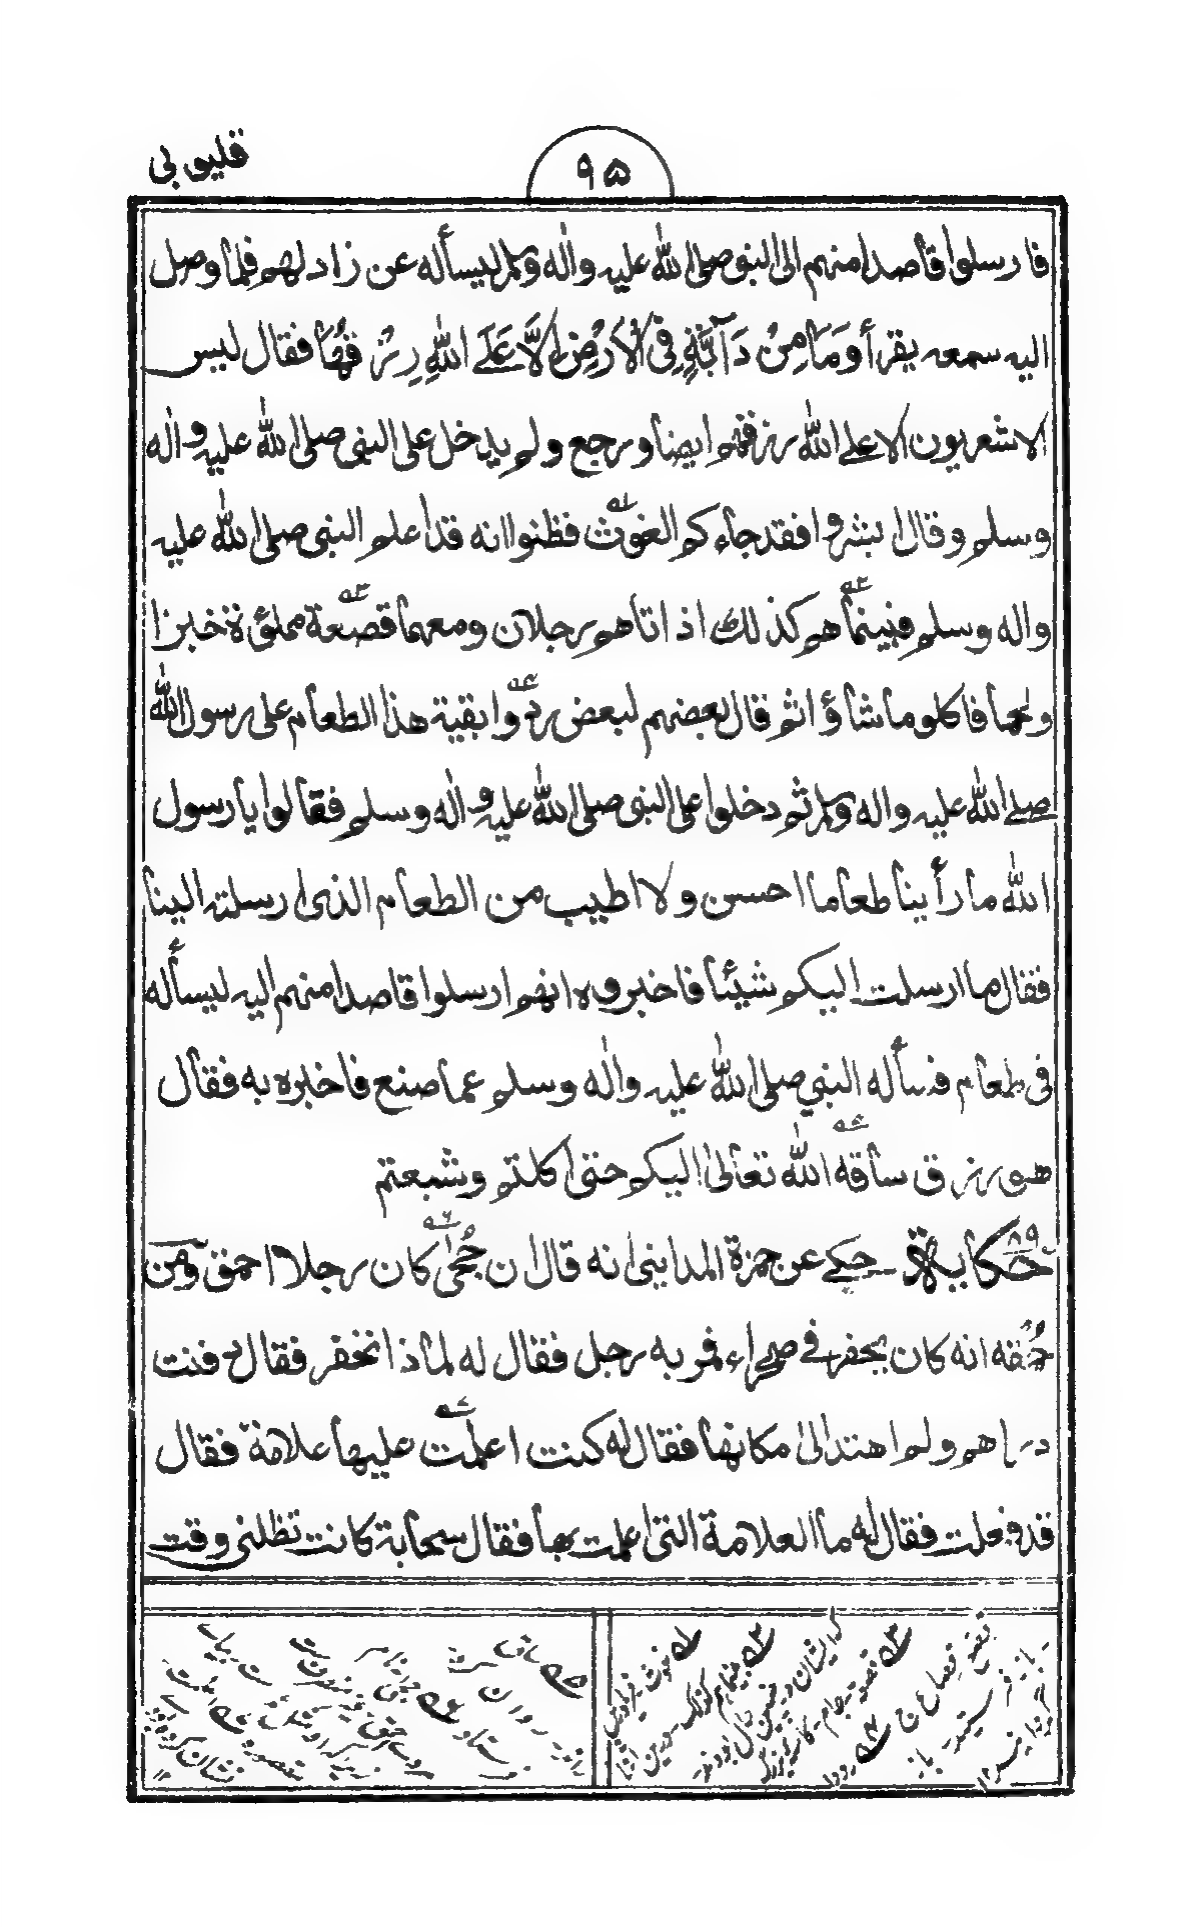 قليوبي
٩٥
فارسلوا قاصدا منهم الى النبي صلى الله عليه واله وسلم ليسأله عن زاد لهم فلما وصل
اليه سمعه يقرأ وَمَا مِنْ دَآبَّةٍ فِي الْاَرْضِ اِلَّا عَلَى اللهِ رِزْقُهَا فقال ليس
الاشعريون الا على الله رزقهم ايضا ورجع ولم يدخل على النبي صلى الله عليه واله
وسلم وقال ابشروا فقد جاءكم الغوث فظنوا انه قد اعلم النبي صلى الله عليه
واله وسلم فبينما هم كذلك اذ اتاهم رجلان ومعهما قصعة مملوة خبزا
ولحما فاكلوا ما شاؤا ثم قال بعضهم لبعض ردوا بقية هذا الطعام على رسول الله
صلى الله عليه واله وسلم ثم دخلوا على النبي صلى الله عليه واله وسلم فقالوا يا رسول
الله ما رأينا طعاما احسن ولا اطيب من الطعام الذي ارسلته الينا
فقال ما ارسلت اليكم شيئا فاخبروه انهم ارسلوا قاصدا منهم اليه ليسأله
في طعام فسأله النبي صلى الله عليه واله وسلم عما صنع فاخبره به فقال
هو رزق ساقه الله تعالى اليكم حتى اكلتم وشبعتم
حكاية ٨٩ حكي عن حمزة المدايني انه قال ان جُحٰى كان رجلا احمق ومن
حُمقه انه كان يحفر في صحراء فمر به رجل فقال له لماذا تحفر فقال دفنت
دراهم ولم اهتد الى مكانها فقال له كنت اعلمت عليها علامة فقال
قد فعلت فقال له ما العلامة التي اعلمت بها فقال سحابة كانت تظلني وقت